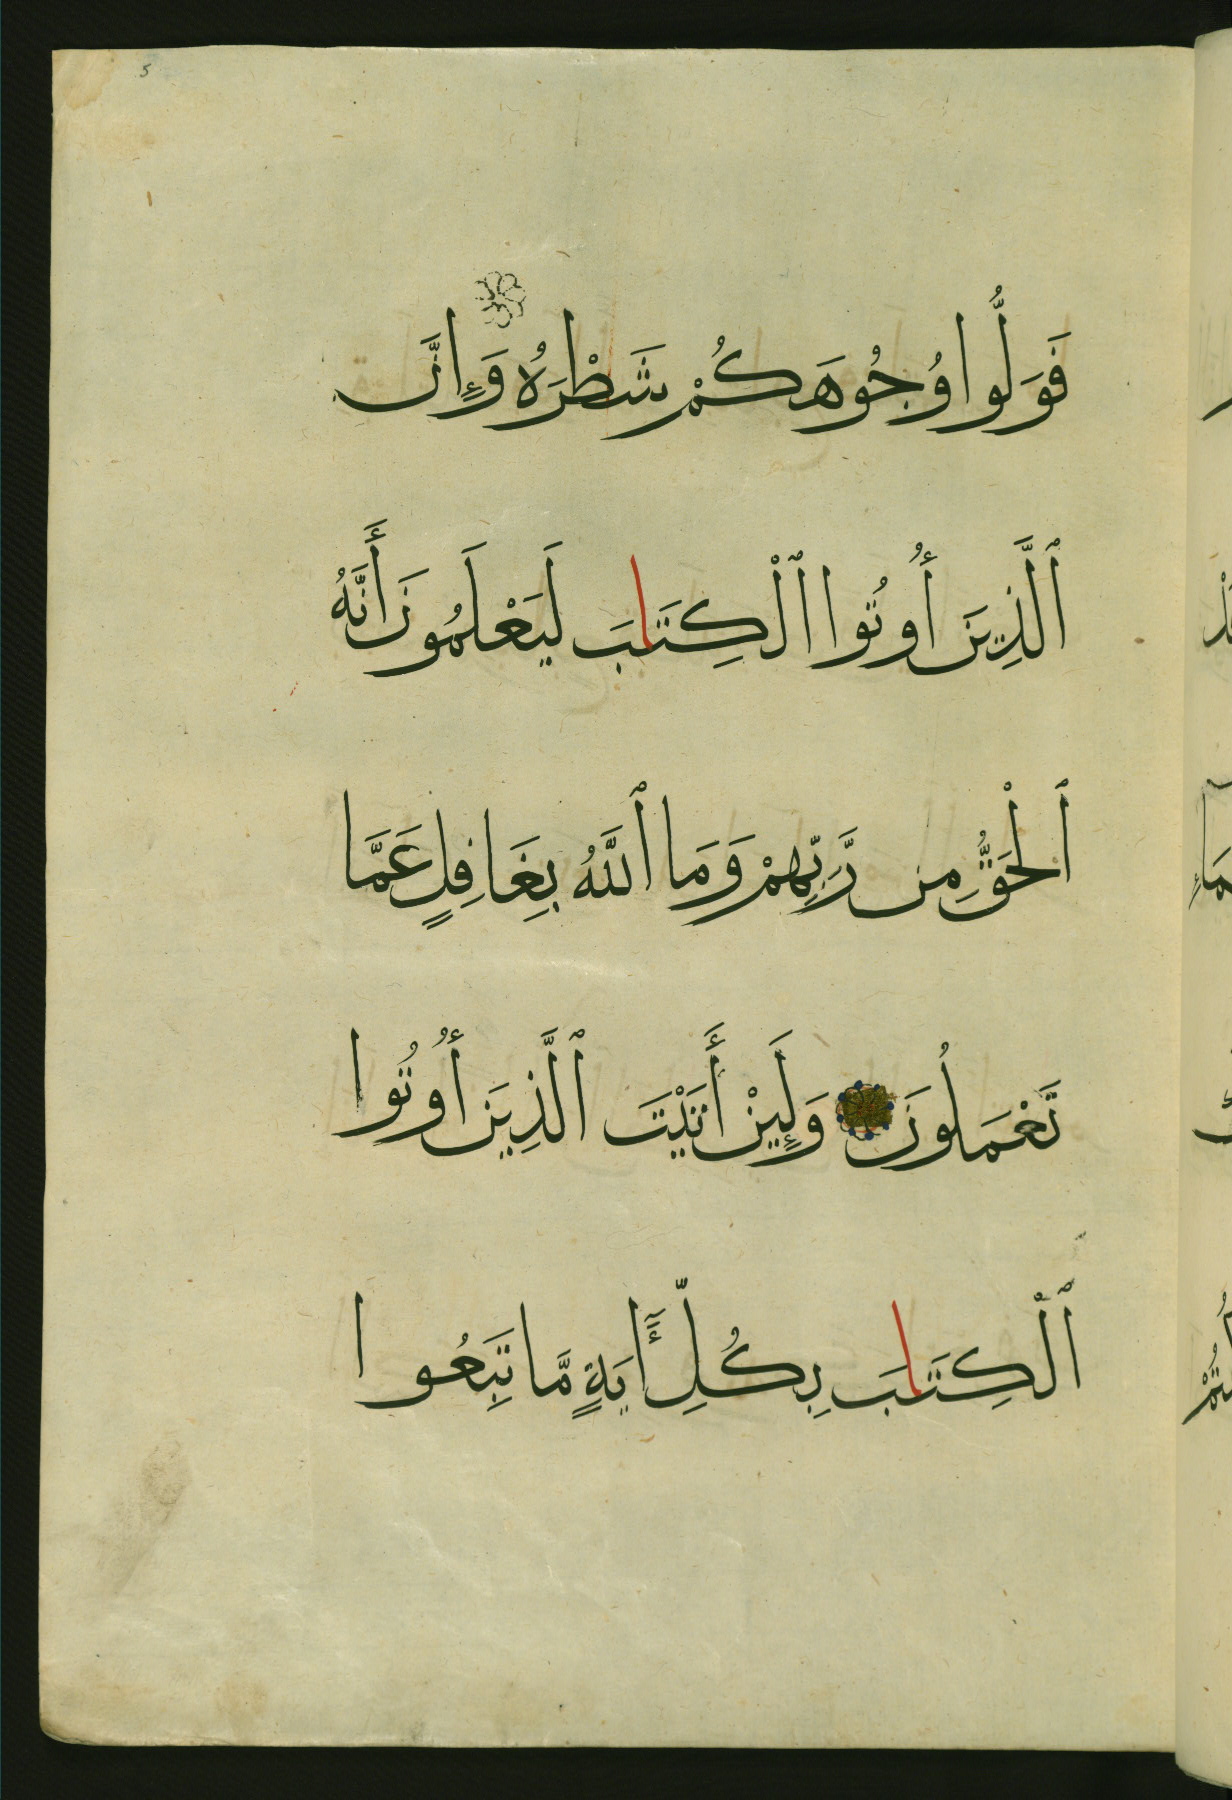 فَوَلُّوا وُجُوهَكُمْ شَطْرَهُ وَإِنَّ
ٱلَّذِينَ أُوتُوا ٱلْكِتَابَ لَيَعْلَمُونَ أَنَّهُ
ٱلْحَقُّ مِن رَّبِّهِمْ وَمَا ٱللَّهُ بِغَافِلٍ عَمَّا
تَعْمَلُونَ وَلَئِنْ أَتَيْتَ ٱلَّذِينَ أُوتُوا
ٱلْكِتَابَ بِكُلِّ ءَايَةٍ مَّا تَبِعُوا